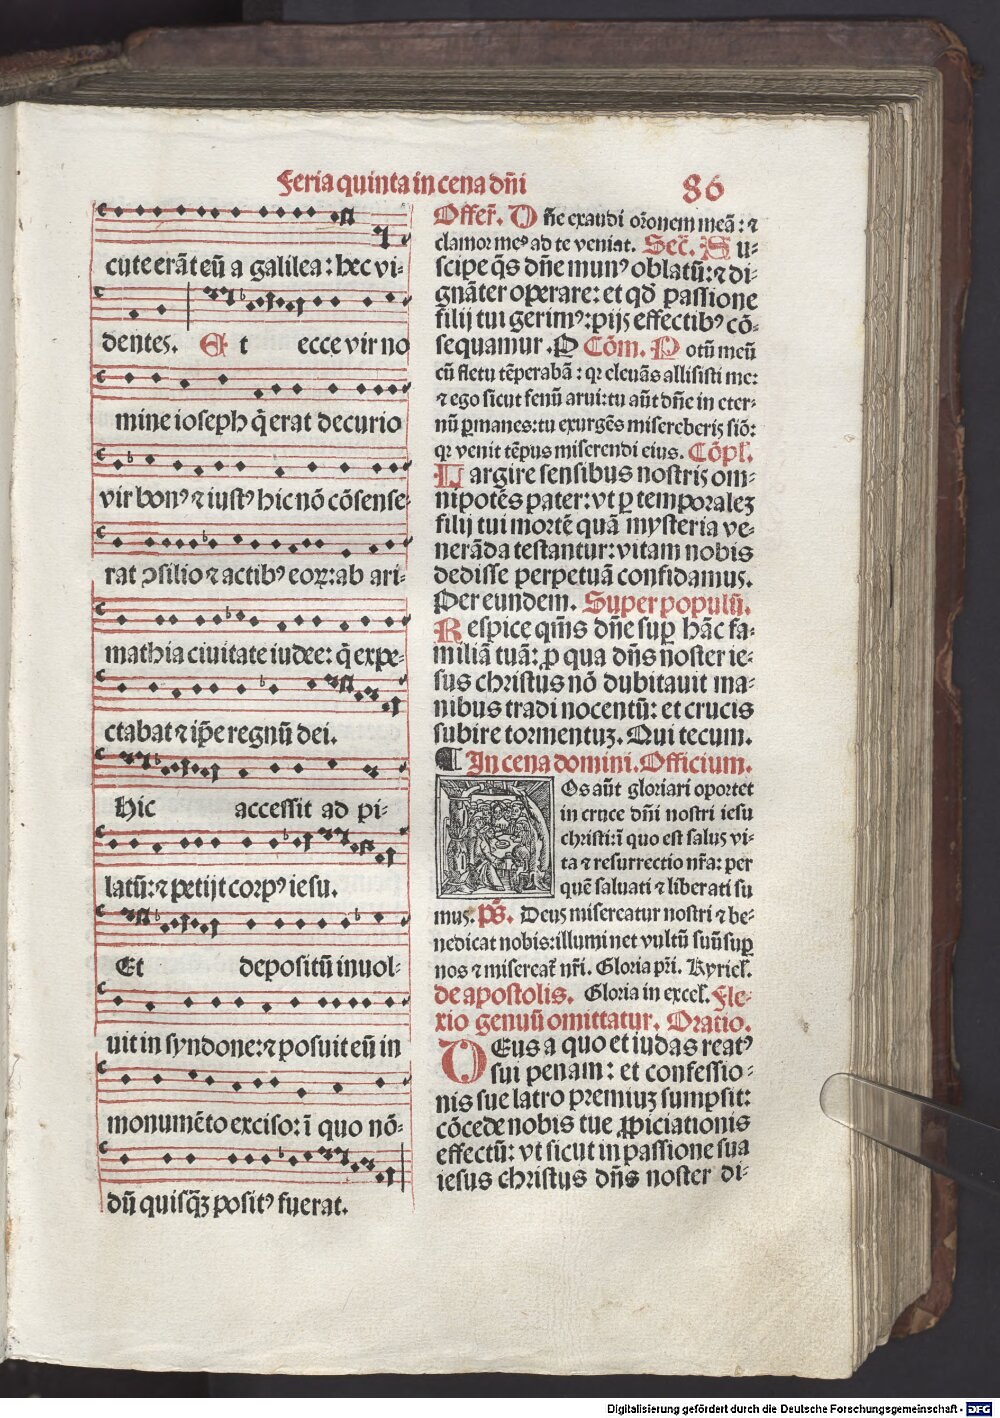 Feria quinta in cena dn̄i 86
cute erāt eū a galilea: hec vi-
dentes. Et ecce vir no
mine ioseph q̄ erat decurio
vir bonꝰ ⁊ iustꝰ hic nō cōsense-
rat ↄsilio ⁊ actibꝰ eoꝝ: ab ari-
mathia ciuitate iudee: q̄ expe-
ctabat ⁊ ip̄e regnū dei.
Hic accessit ad pi-
latū: ⁊ petijt corpꝰ iesu.
Et depositū inuol-
uit in syndone: ⁊ posuit eū in
monumēto exciso: ī quo nō-
dū quisq̄ꝫ positꝰ fuerat.
Offer̄. Dn̄e exaudi orōnem meā: ⁊
clamor meꝰ ad te veniat. Sec̄. Su-
scipe q̄s dn̄e munꝰ oblatū: ⁊ di-
gnāter operare: et qd̄ passione
filij tui gerimꝰ: pijs effectibꝰ cō-
sequamur. P Cōm. Potū meū
cū fletu tēperabā: qꝛ eleuās allisisti me:
⁊ ego sicut fenū arui: tu aūt dn̄e in eter-
nū ꝑmanes: tu exurgēs misereberis siō:
qꝛ venit tēpus miserendi eius. Cōpl̄.
Largire sensibus nostris om-
nipotēs pater: vt ꝑ temporaleꝫ
filij tui mortē quā mysteria ve-
nerāda testantur: vitam nobis
dedisse perpetuā confidamus.
Per eundem. Super populū.
Respice qm̄s dn̄e suꝑ hāc fa-
miliā tuā: ꝓ qua dn̄s noster ie-
sus christus nō dubitauit ma-
nibus tradi nocentū: et crucis
subire tormentuꝫ. Qui tecum.
¶ In cena domini. Officium.
Nos aūt gloriari oportet
in cruce dn̄i nostri iesu
christi: ī quo est salus vi-
ta ⁊ resurrectio nr̄a: per
quē saluati ⁊ liberati su
mus. ps̄. Deus misereatur nostri ⁊ be-
nedicat nobis: illuminet vultū suū suꝑ
nos ⁊ misereat̄ nr̄i. Gloria pr̄i. Kyriel̄.
de apostolis. Gloria in excel̄. Fle-
xio genuū omittatur. Oratio.
DEus a quo et iudas reatꝰ
sui penam: et confessio-
nis sue latro premiuꝫ sumpsit:
cōcede nobis tue ꝓpiciationis
effectū: vt sicut in passione sua
iesus christus dn̄s noster di-
Digitalisierung gefördert durch die Deutsche Forschungsgemeinschaft - DFG